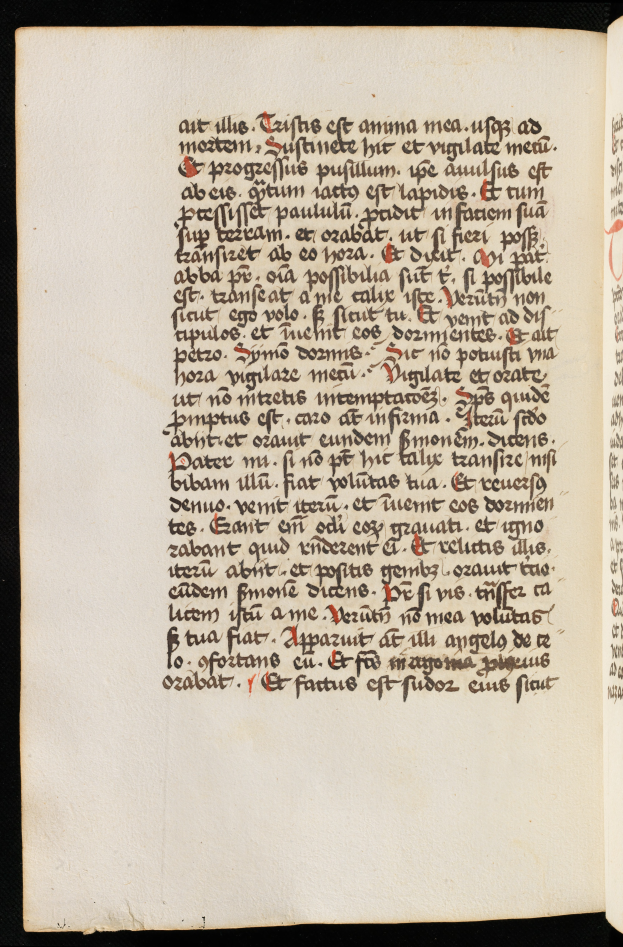 ait illis. Tristis est anima mea. usqꝫ ad
mortem. Sustinete hic et vigilate mecū.
Et progressus pusillum. ip̄e auulsus est
ab eis. qᷓtum iactꝰ est lapidis. Et cum
ꝓcessisset paululū. ꝓcidit in faciem suā
sup̄ terram. et orabat. ut si fieri possꝫ.
transiret ab eo hora. Et dixit. Mi pat̄.
abba pr̄. oīa possibilia sūt t̄. si possibile
est. transeat a me calix iste. Verūtn̄ non
sicut ego volo. sꝫ sicut tu. Et venit ad dis
cipulos. et īuenit eos dormientes. Et ait
petro. Symō dormis. Sic nō potuisti vna
hora vigilare mecū. Vigilate et orate
ut nō intretis in temptacōeꝫ. Sp̄s quidē
ꝓmptus est. caro āt infirma. Iterū scd̄o
abiit. et orauit eundem s̄monēm. dicens.
Pater mi. si nō pt̄ hic calix transire nisi
bibam illū. fiat volūtas tua. Et reuersꝰ
denuo. venit iterū. et īuenit eos dormien
tes. Erant em̄ ocl̄i eoꝝ grauati. et igno
rabant quid rn̄derent ei. Et relictis illis.
iterū abiit. et positis genibꝫ. orauit t̄cio.
eūdem s̄monē dicens. Pr̄ si vis. trāsfer ca
licem istū a me. Verūtn̄ nō mea volūtas
sꝫ tua fiat. Apparuit āt illi angelꝰ de ce
lo. ꝯfortans eū. Et fc̄s in agonia
orabat. Et factus est sudor eius sicut